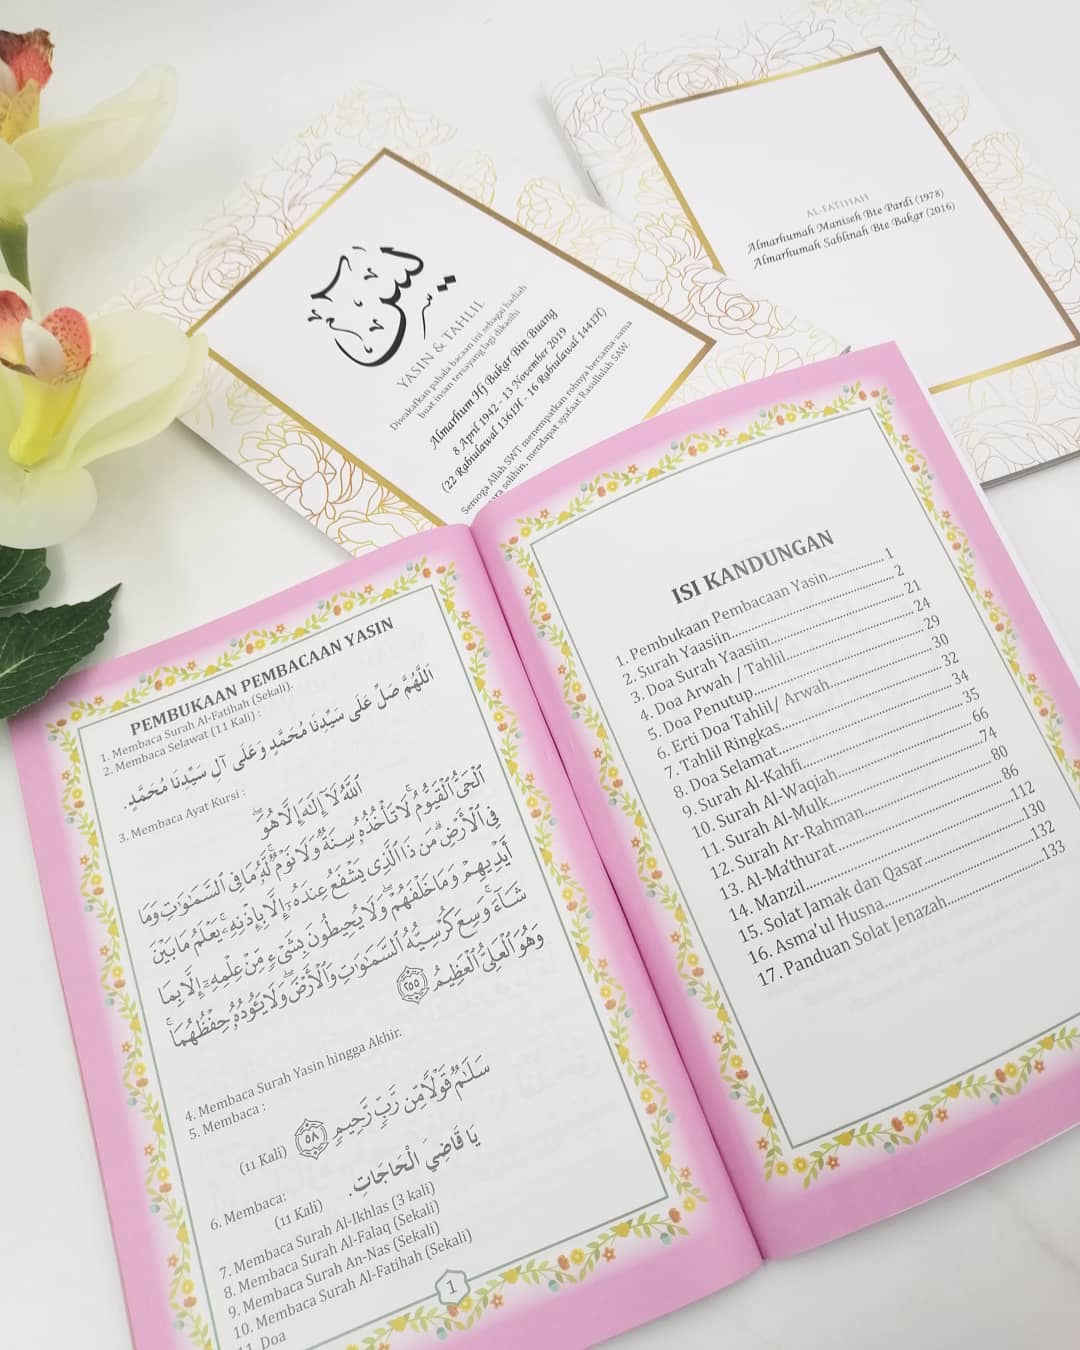 يس
YASIN & TAHLIL
Diwakafkan pahala bacaan ini sebagai hadiah
buat insan tersayang lagi dikasihi
Almarhum Hj Bakar Bin Buang
8 April 1942 - 13 November 2019
(22 Rabiulawal 1361H - 16 Rabiulawal 1441H)
Semoga Allah SWT menempatkan rohnya bersama-sama
para solihin, mendapat syafaat Rasullulah SAW.
AL-FATIHAH
Almarhumah Maniseh Bte Pardi (1978)
Almarhumah Sablinah Bte Bakar (2016)
PEMBUKAAN PEMBACAAN YASIN
1. Membaca Surah Al-Fatihah (Sekali).
2. Membaca Selawat (11 Kali) :
اَللّٰهُمَّ صَلِّ عَلَى سَيِّدِنَا مُحَمَّدٍ وَعَلَى آلِ سَيِّدِنَا مُحَمَّدٍ.
3. Membaca Ayat Kursi :
ٱللَّهُ لَآ إِلَٰهَ إِلَّا هُوَ
ٱلۡحَيُّ ٱلۡقَيُّومُۚ لَا تَأۡخُذُهُۥ سِنَةٞ وَلَا نَوۡمٞۚ لَّهُۥ مَا فِي ٱلسَّمَٰوَٰتِ وَمَا
فِي ٱلۡأَرۡضِۗ مَن ذَا ٱلَّذِي يَشۡفَعُ عِندَهُۥٓ إِلَّا بِإِذۡنِهِۦۚ يَعۡلَمُ مَا بَيۡنَ
أَيۡدِيهِمۡ وَمَا خَلۡفَهُمۡۖ وَلَا يُحِيطُونَ بِشَيۡءٖ مِّنۡ عِلۡمِهِۦٓ إِلَّا بِمَا
شَآءَۚ وَسِعَ كُرۡسِيُّهُ ٱلسَّمَٰوَٰتِ وَٱلۡأَرۡضَۖ وَلَا يَـُٔودُهُۥ حِفۡظُهُمَاۚ
وَهُوَ ٱلۡعَلِيُّ ٱلۡعَظِيمُ ٢٥٥
4. Membaca Surah Yasin hingga Akhir.
5. Membaca :
سَلَٰمٞ قَوۡلٗا مِّن رَّبّٖ رَّحِيمٖ ٥٨ (11 Kali)
يَا قَاضِيَ الْحَاجَاتِ.
6. Membaca:
(11 Kali)
7. Membaca Surah Al-Ikhlas (3 kali)
8. Membaca Surah Al-Falaq (Sekali)
9. Membaca Surah An-Nas (Sekali)
10. Membaca Surah Al-Fatihah (Sekali)
11. Doa
1
ISI KANDUNGAN
1. Pembukaan Pembacaan Yasin............... 1
2. Surah Yaasiin............................................ 2
3. Doa Surah Yaasiin................................... 21
4. Doa Arwah / Tahlil................................. 24
5. Doa Penutup............................................ 29
6. Erti Doa Tahlil/ Arwah......................... 30
7. Tahlil Ringkas.......................................... 32
8. Doa Selamat............................................. 34
9. Surah Al-Kahfi......................................... 35
10. Surah Al-Waqiah.................................. 66
11. Surah Al-Mulk....................................... 74
12. Surah Ar-Rahman................................ 80
13. Al-Ma'thurat.......................................... 86
14. Manzil..................................................... 112
15. Solat Jamak dan Qasar........................ 130
16. Asma'ul Husna....................................... 132
17. Panduan Solat Jenazah........................ 133